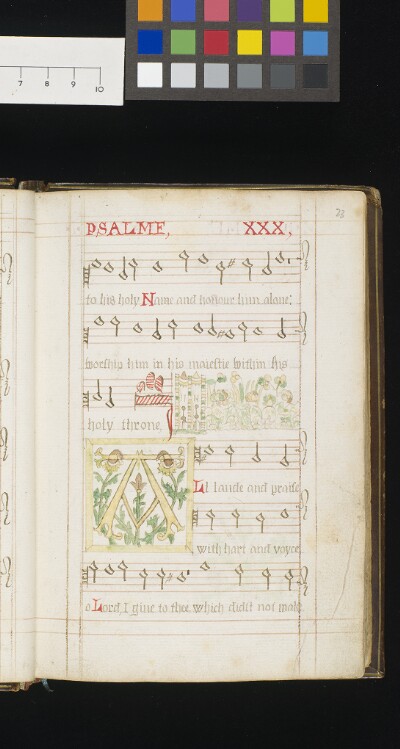 7 8 9 10
23
PSALME, XXX,
to his holy Name and honour him alone:
worship him in his maiestie within his
holy throne,
A
Ll laude and praise
with hart and voyce
o Lord, I giue to thee which didst not make